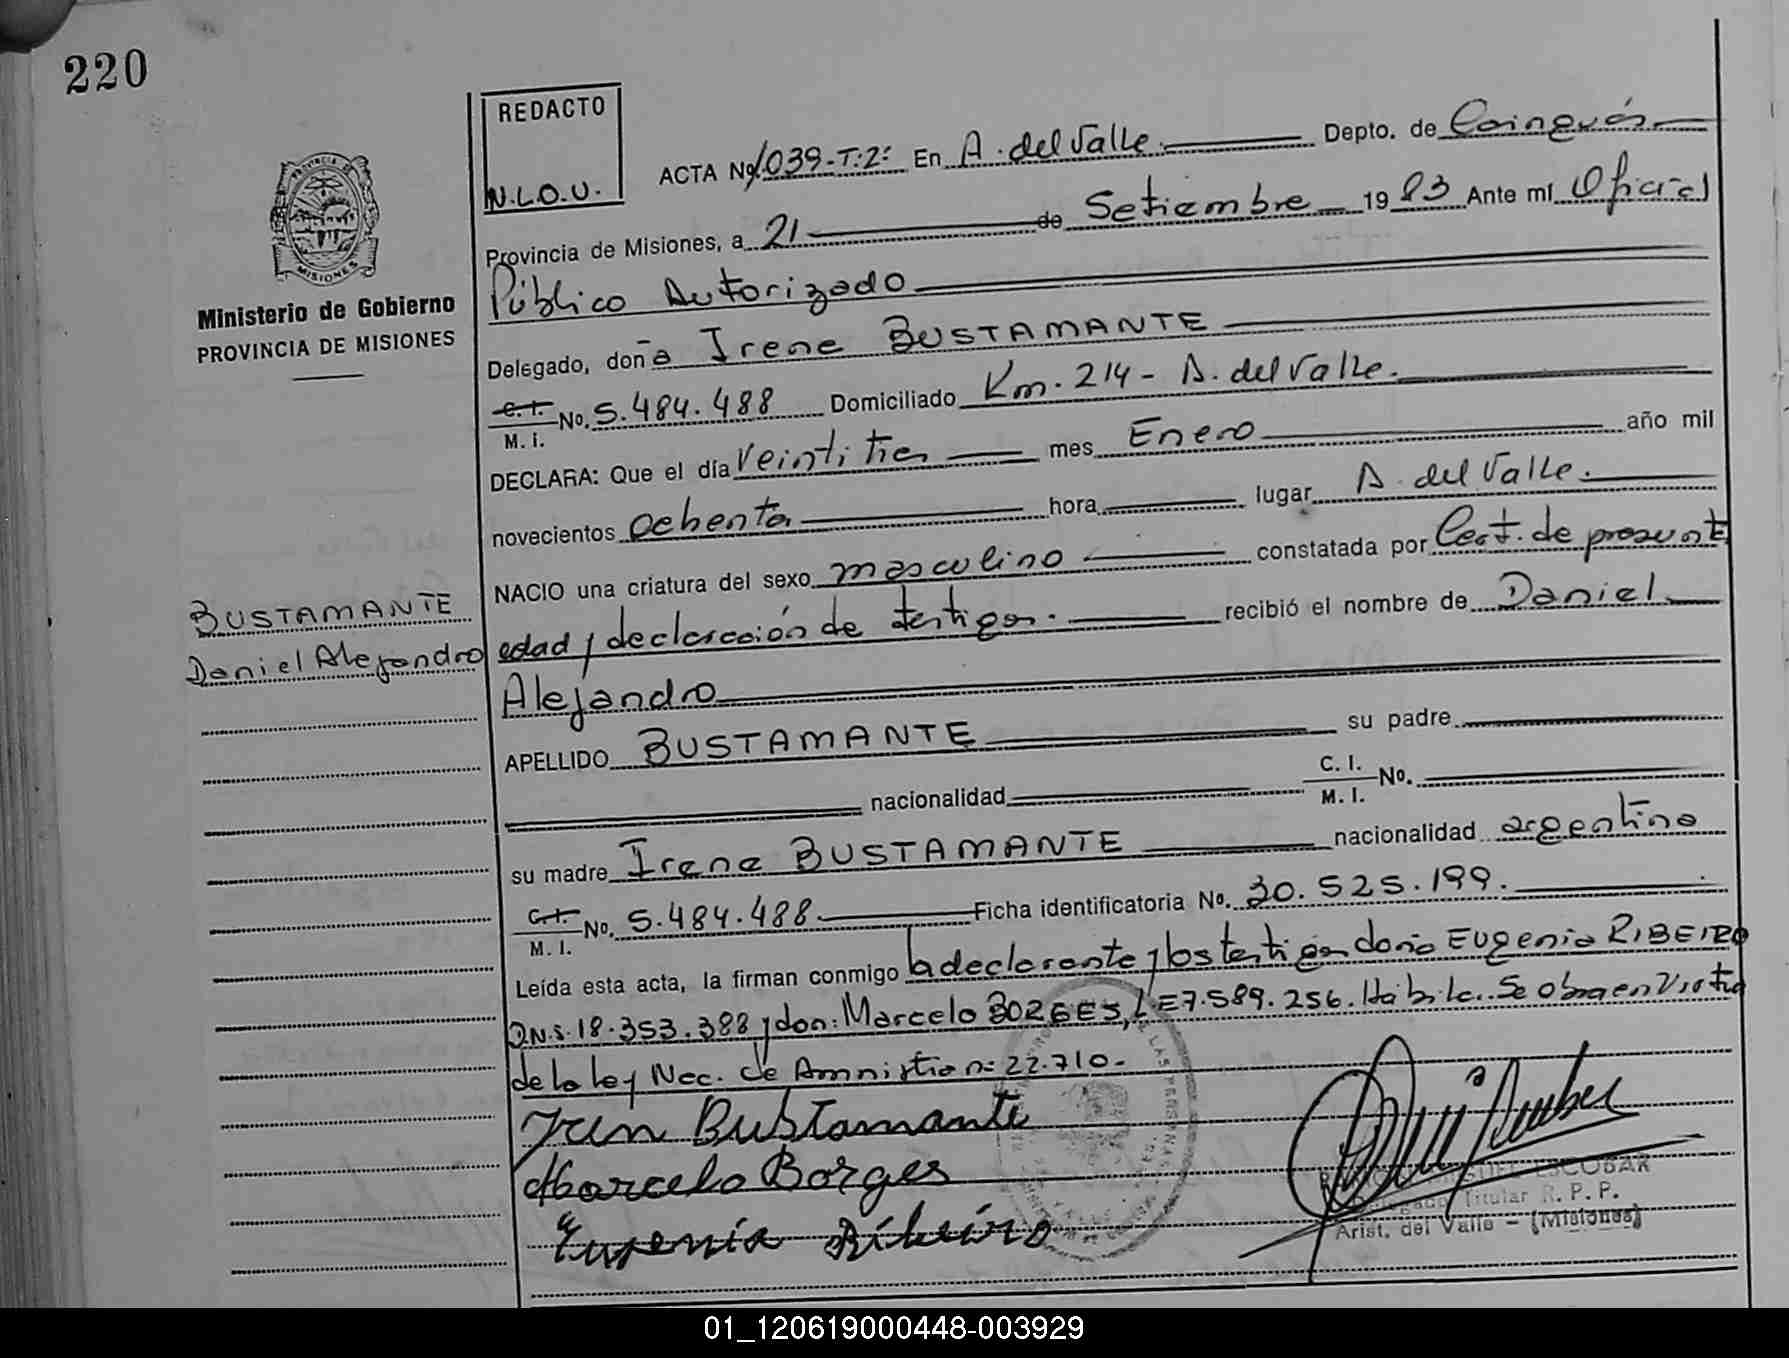 220
REDACTO
N.L.O.U.
ACTA Nº 1.039-T:2: En A. del Valle. Depto. de Cainguás
Provincia de Misiones, a 21 de Setiembre 1983 Ante mí Oficial
Público Autorizado
PROVINCIA DE
MISIONES
Ministerio de Gobierno
PROVINCIA DE MISIONES
Delegado, doña Irene BUSTAMANTE
C.I. No. 5.484.488 Domiciliado Km. 214 - A. del Valle.
M. I.
DECLARA: Que el día veintitres mes Enero año mil
novecientos ochenta hora lugar A. del Valle.
NACIO una criatura del sexo masculino constatada por Cert. de presunt
BUSTAMANTE
Daniel Alejandro
edad y declaración de testigos. recibió el nombre de Daniel
Alejandro
APELLIDO BUSTAMANTE su padre
nacionalidad C. I. No.
M. I.
su madre Irene BUSTAMANTE nacionalidad argentina
C.I. No. 5.484.488. Ficha identificatoria No. 30.525.199.
M. I.
Leída esta acta, la firman conmigo la declarante y los testigos doña Eugenia RIBEIRO
D.N.I. 18.353.388 y don: Marcelo BORGES, L.E 7.589.256. Hábiles. Se obra en Virtud
de la ley Nac. de Amnistia n: 22.710.-
Iren Bustamante
Marcelo Borges
Eugenia Ribeiro
ESCOBAR
Titular R. P. P.
Arist. del Valle - (Misiones)
01_120619000448-003929